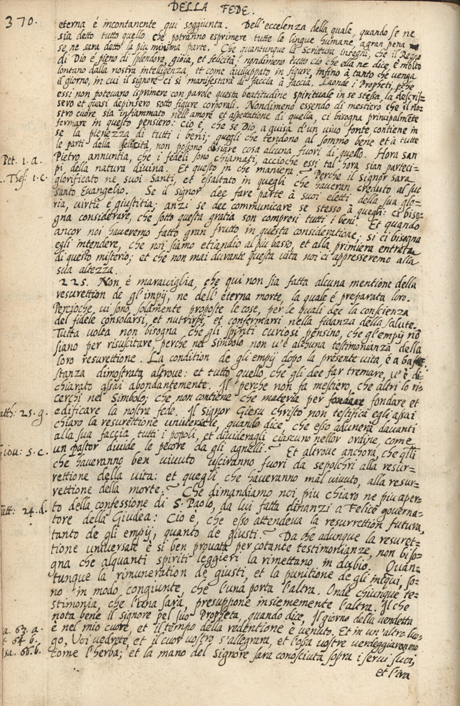 370.
DELLA FEDE.
eterna è incontanente qui soggiunta. Dell'eccelenza della quale, quando se ne
sia detto tutto quello che potranno esprimere tutte le lingue humane, à gran pena
se ne sarà detto la più minima parte. Che quantunque la Scrittura insegni, che il Regno
di Dio è pieno di splendore, gioia, et felicità; nondimeno tutto ciò che ella ne dice è molto
lontano dalla nostra intelligenza, et come inviluppato in figure, infino à tanto che venga
il giorno, in cui il signore ci si manifesterà à faccia, à faccia. Laonde i Propheti, che
essi non potevano esprimere con parole questa beatitudine spirituale in se stessa, la descris-
sero et quasi depinsero sotto figure corporali. Nondimeno essendo di mestiero che il no-
stro cuore sia infiammato nell'amore et aspettatione di quella, ci bisogna principalmente
fermare in questo pensiero: Ciò è, che se Dio, à guisa d'un vivo fonte contiene in
se la pienezza di tutti i beni; quegli che tendono al sommo bene et à tutte
le parti della felicità, non possono desiderare cosa alcuna fuori di quello. Hora san
Pet. 1. a.
Pietro annuntia, che i fedeli sono chiamati, acciochè essi tal'hora sian parteci-
pi della natura divina. Et questo in che maniera? Perche il signore sarà
2. Tess. 1. c.
glorificato ne suoi Santi, et esaltato in quegli che haveran creduto al suo
santo Evangelio. Se il signor dee fare parte à suoi eletti della sua glo-
ria, virtù e giustitia; anzi se dee communicare se stesso à quegli: ci biso-
gna considerare, che sotto questa gratia son compresi tutti i beni. Et quando
ancor noi haveremo fatto gran frutto in questa consideratione; si ci bisogna
egli intendere, che noi siamo etiandio al più basso, et alla primiera entrata
di questo misterio; et che non mai durante questa vita noi ci appresseremo alla
sua altezza.
225. Non è maraviglia, che qui non sia fatta alcuna mentione della
resurettion de gli impij, ne dell'eterna morte, la quale è preparata loro.
Percioche, vi sono solamente proposte le cose, per le quali dee la conscienza
del fidele consolarsi, et nutrirsi, et confermarsi nella fidanza della salute.
Tutta volta non bisogna che gli spiriti curiosi pensino, che gl'empij no
siano per risuscitare, perche nel Simbolo non v'è alcuna testimonianza della
loro resurettione. La condition de gli empij dopo la presente vita, è à ba-
stanza dimostrata altrove: et tutto quello, che gli dee far tremare, v'è di-
chiarato assai abondantemente. Il perche non fà mestiero, che altri lo ri-
cerchi nel Simbolo; che non contiene che materia per fondare et
edificare la nostra fede. Il Signor Giesu christo non testifica egli assai
Matth. 25. g.
chiaro la resurettione universale, quando dice, che esso adunerà davanti
alla sua faccia, tutti i popoli, et dividerágli ciascuno nell'or ordine, come
un pastor divide le pecore da gli agnelli? Et altrove anchora, che gli
Giou. 5. c.
che haveranno ben vivuto usciranno fuori da sepolchri alla resur-
rettione della vita: et quegli che haveranno mal vivuto, alla resur-
rettione della morte? Che dimandiamo noi più chiaro ne piu aper-
Att. 24. d.
to della confessione di S. Paolo, da lui fatta dinanzi à Felice governa-
tore della Giudea: Ciò è, che esso attendeva la resurrettion futura,
tanto de gli empij, quanto de giusti? Da che adunque la resuret-
tione universale è si ben provata per cotante testimonianze, non biso-
gna che alquanti spiriti leggieri la rimettano in dubio. Quan-
tunque la rimuneration de giusti, et la punitione de gli iniqui, so-
no in modo congiunte, che l'una porta l'altra. Onde chiunque te-
stimonia, che l'una sarà, presuppone insiememente l'altra. Il che
nota bene il signore pel suo Propheta, quando dice, Il giorno della vendetta
è nel mio cuore, et il tempo della redentione è venuto. Et in un'altro luo-
go. Voi vedrete et il cuor vostro s'allegrarà, et l'ossa vostre verdeggiaranno
Isa. 66. b.
come l'herba; et la mano del Signore sarà conosciuta sopra i servi suoi,
et l'ira